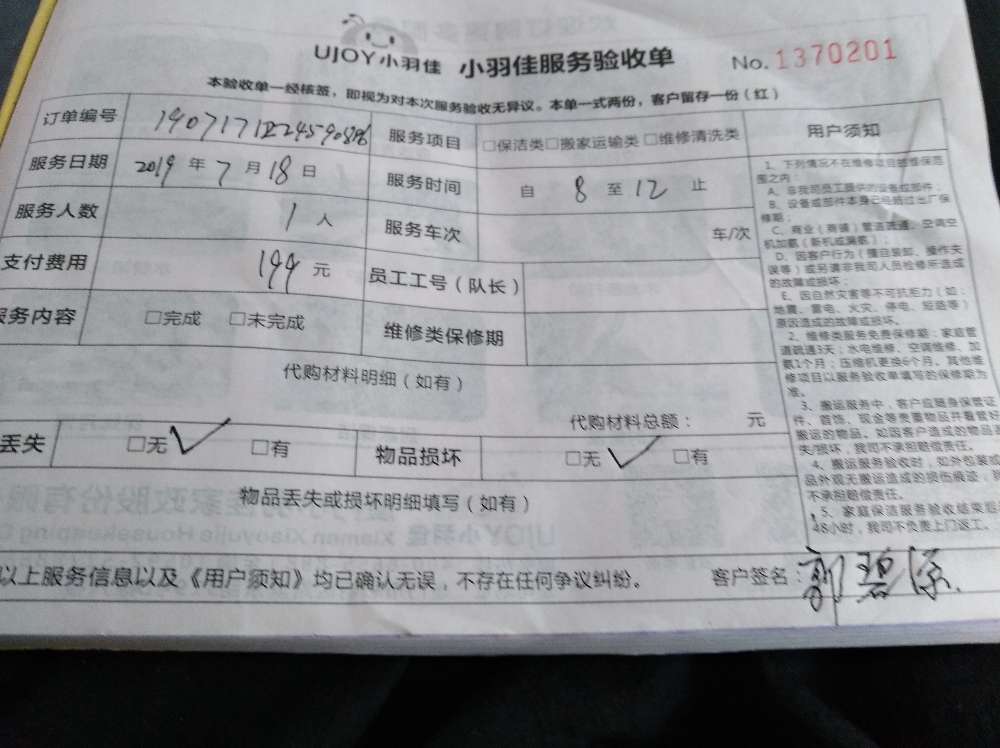 UJOY小羽佳 小羽佳服务验收单 No.1370201
本验收单一经核签，即视为对本次服务验收无异议。本单一式两份，客户留存一份（红）
订单编号 服务项目 □保洁类□搬家运输类□维修清洗类
服务日期 2019年7月18日 服务时间 自8至12止
服务人数 1人 服务车次 车/次
支付费用 199元 员工工号（队长）
服务内容 □完成 □未完成 维修类保修期
代购材料明细（如有）
代购材料总额： 元
丢失 □无 ✓ □有 物品损坏 □无 ✓ □有
物品丢失或损坏明细填写（如有）
以上服务信息以及《用户须知》均已确认无误，不存在任何争议纠纷。 客户签名：郭碧
用户须知
1、下列情况不在维修项目的维保范
围之内：
A、非我司员工提供的设备或部件；
B、设备或部件本身已经超过出厂保
修期；
C、商业（商铺）管道疏通、空调空
机加氨（新机或漏氨）；
D、因客户行为（擅自装卸、操作失
误等）或另请非我司人员检修所造成
的故障或损坏；
E、因自然灾害等不可抗拒力（如：
地震、雷电、火灾、停电、短路等）
原因造成的故障或损坏。
2、维修类服务免费保修期：家庭管
道疏通3天；水电维修、空调维修、加
氨1个月；压缩机更换6个月。其他维
修项目以服务验收单填写的保修期为
准。
3、搬运服务中，客户应随身保管证
件、首饰、现金等贵重物品并看管好
搬运的物品。如因客户造成的物品丢
失/损坏，我司不承担赔偿责任。
4、搬运服务验收时，如外包装或
品外观无搬运造成的损伤痕迹，我
不承担赔偿责任。
5、家庭保洁服务验收结束后
48小时，我司不负责上门返工。